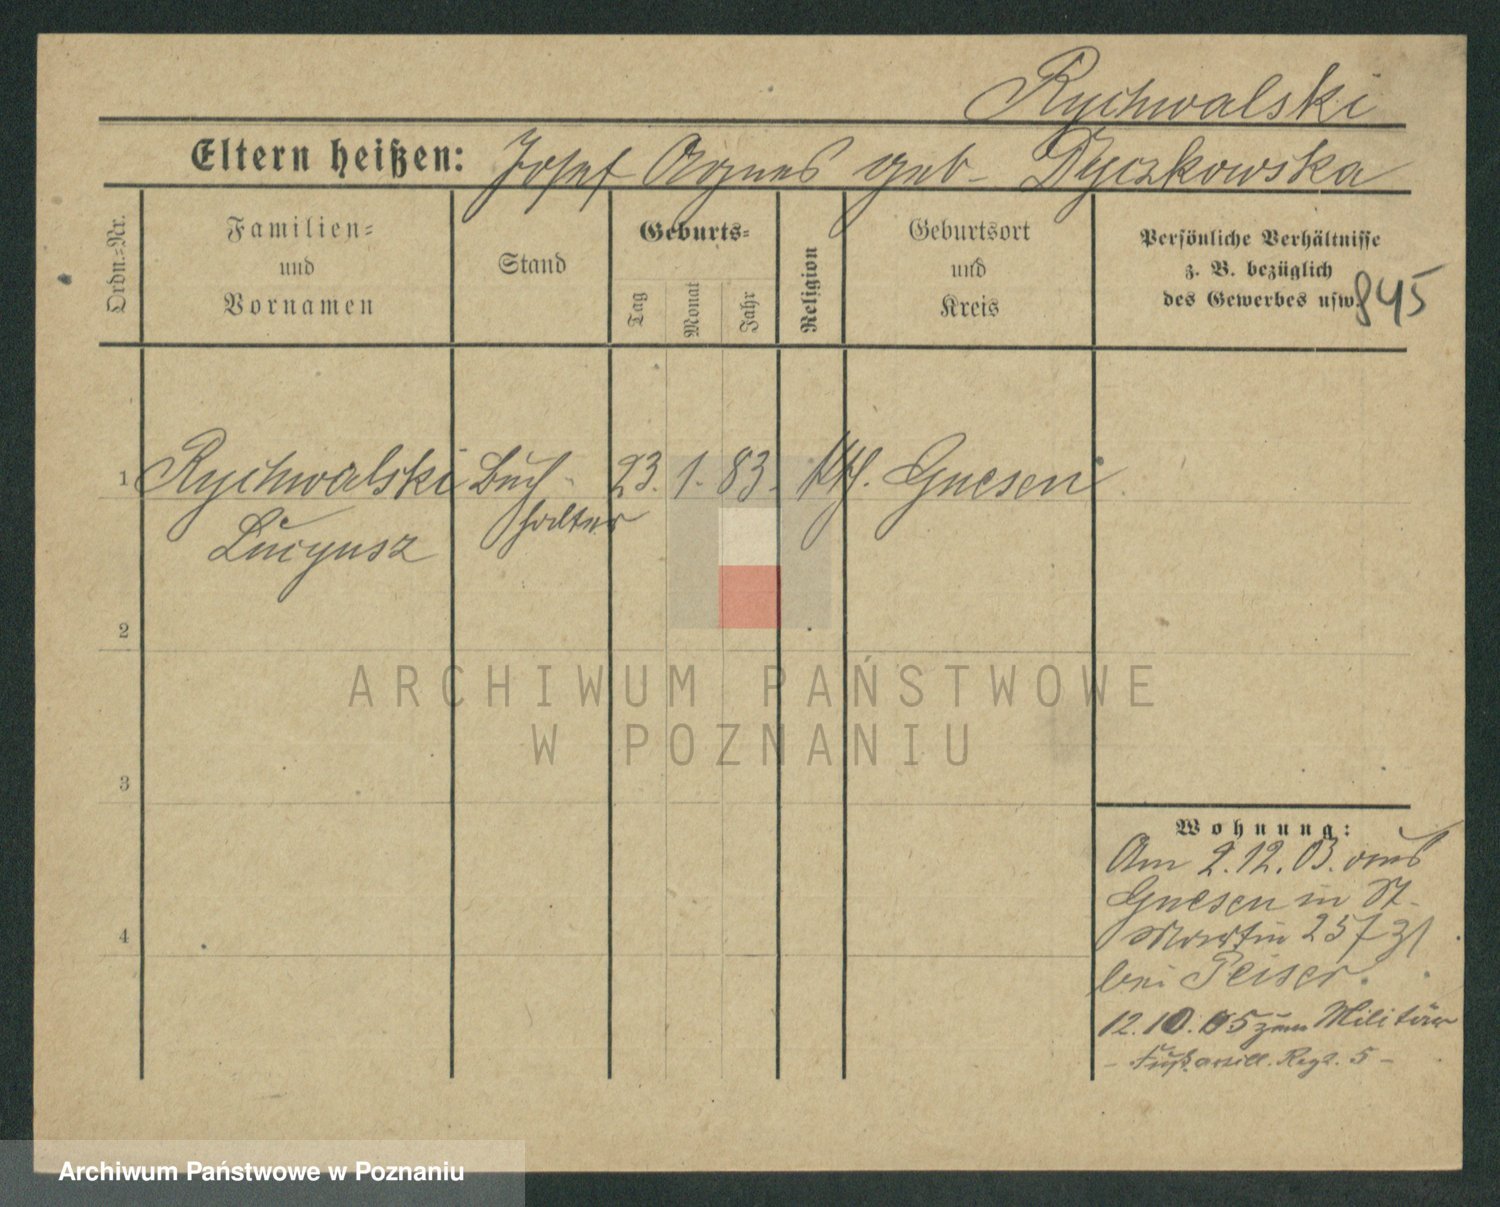 Rychwalski
Eltern heißen: Josef Agnes geb. Dyczkowska
Ordn.-Nr.
Familien-
und
Vornamen
Stand
Geburts-
Tag
Monat
Jahr
Religion
Geburtsort
und
Kreis
Persönliche Verhältnisse
z. B. bezüglich
des Gewerbes usw.
845
1 Rychwalski Buch- 23. 1. 83. kth. Gnesen
Lucyusz halter
2
3
4
ARCHIWUM PAŃSTWOWE
W POZNANIU
Wohnung:
Am 2.12.03. aus
Gnesen in St.
Martin 257
bei Peiser.
12.10.05 zum Militär
- Fußartill. Regt. 5 -
Archiwum Państwowe w Poznaniu